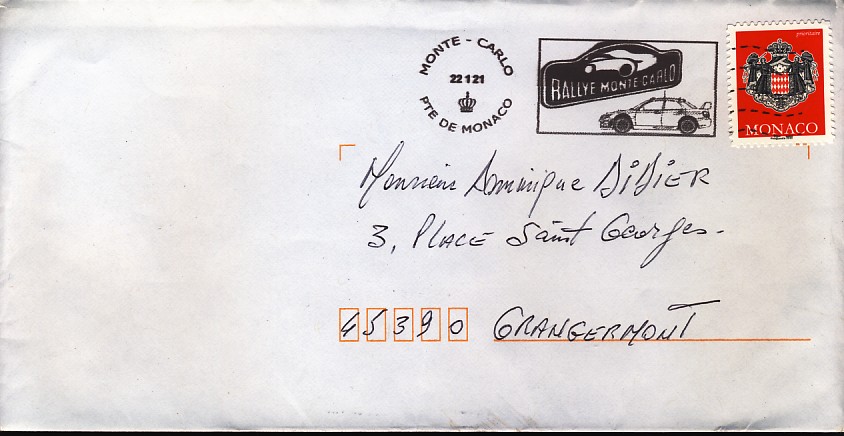 MONTE - CARLO
22 1 21
PTE DE MONACO
RALLYE MONTE CARLO
prioritaire
MONACO
Monsieur Dominique DiDiER
3, PLACE Saint Georges.
45390 GRANGERMONT